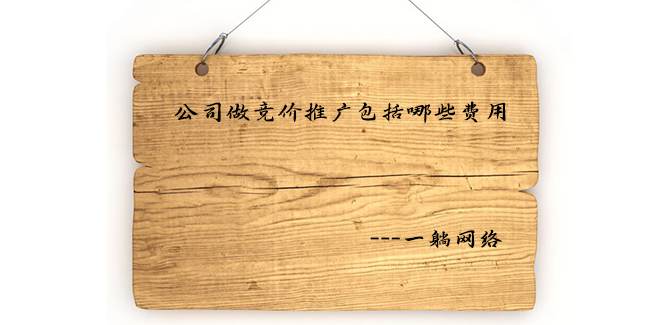 公司做竞价推广包括哪些费用
---一躺网络